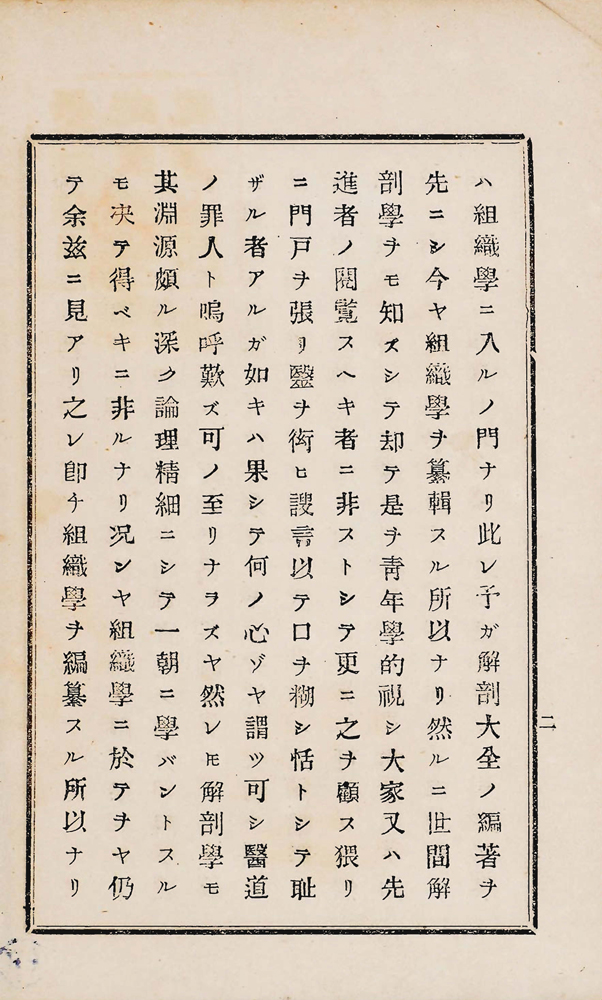 ハ組織學ニ入ルノ門ナリ此レ予ガ解剖大全ノ編著ヲ
先ニシ今ヤ組織學ヲ纂輯スル所以ナリ然ルニ世間解
剖學ヲモ知ズシテ却テ是ヲ靑年學的視シ大家又ハ先
進者ノ閱覽スヘキ者ニ非ストシテ更ニ之ヲ顧ス猥リ
ニ門戸ヲ張リ醫ヲ衒ヒ謏言以テ口ヲ糊シ恬トシテ耻
ザル者アルガ如キハ果シテ何ノ心ゾヤ謂ツ可シ醫道
ノ罪人ト嗚呼歎ズ可ノ至リナラズヤ然レ𪜈解剖學モ
其淵源頗ル深ク論理精細ニシテ一朝ニ學バントスル
モ决テ得ベキニ非ルナリ况ンヤ組織學ニ於テヲヤ仍
テ余茲ニ見アリ之レ卽チ組織學ヲ編纂スル所以ナリ
二